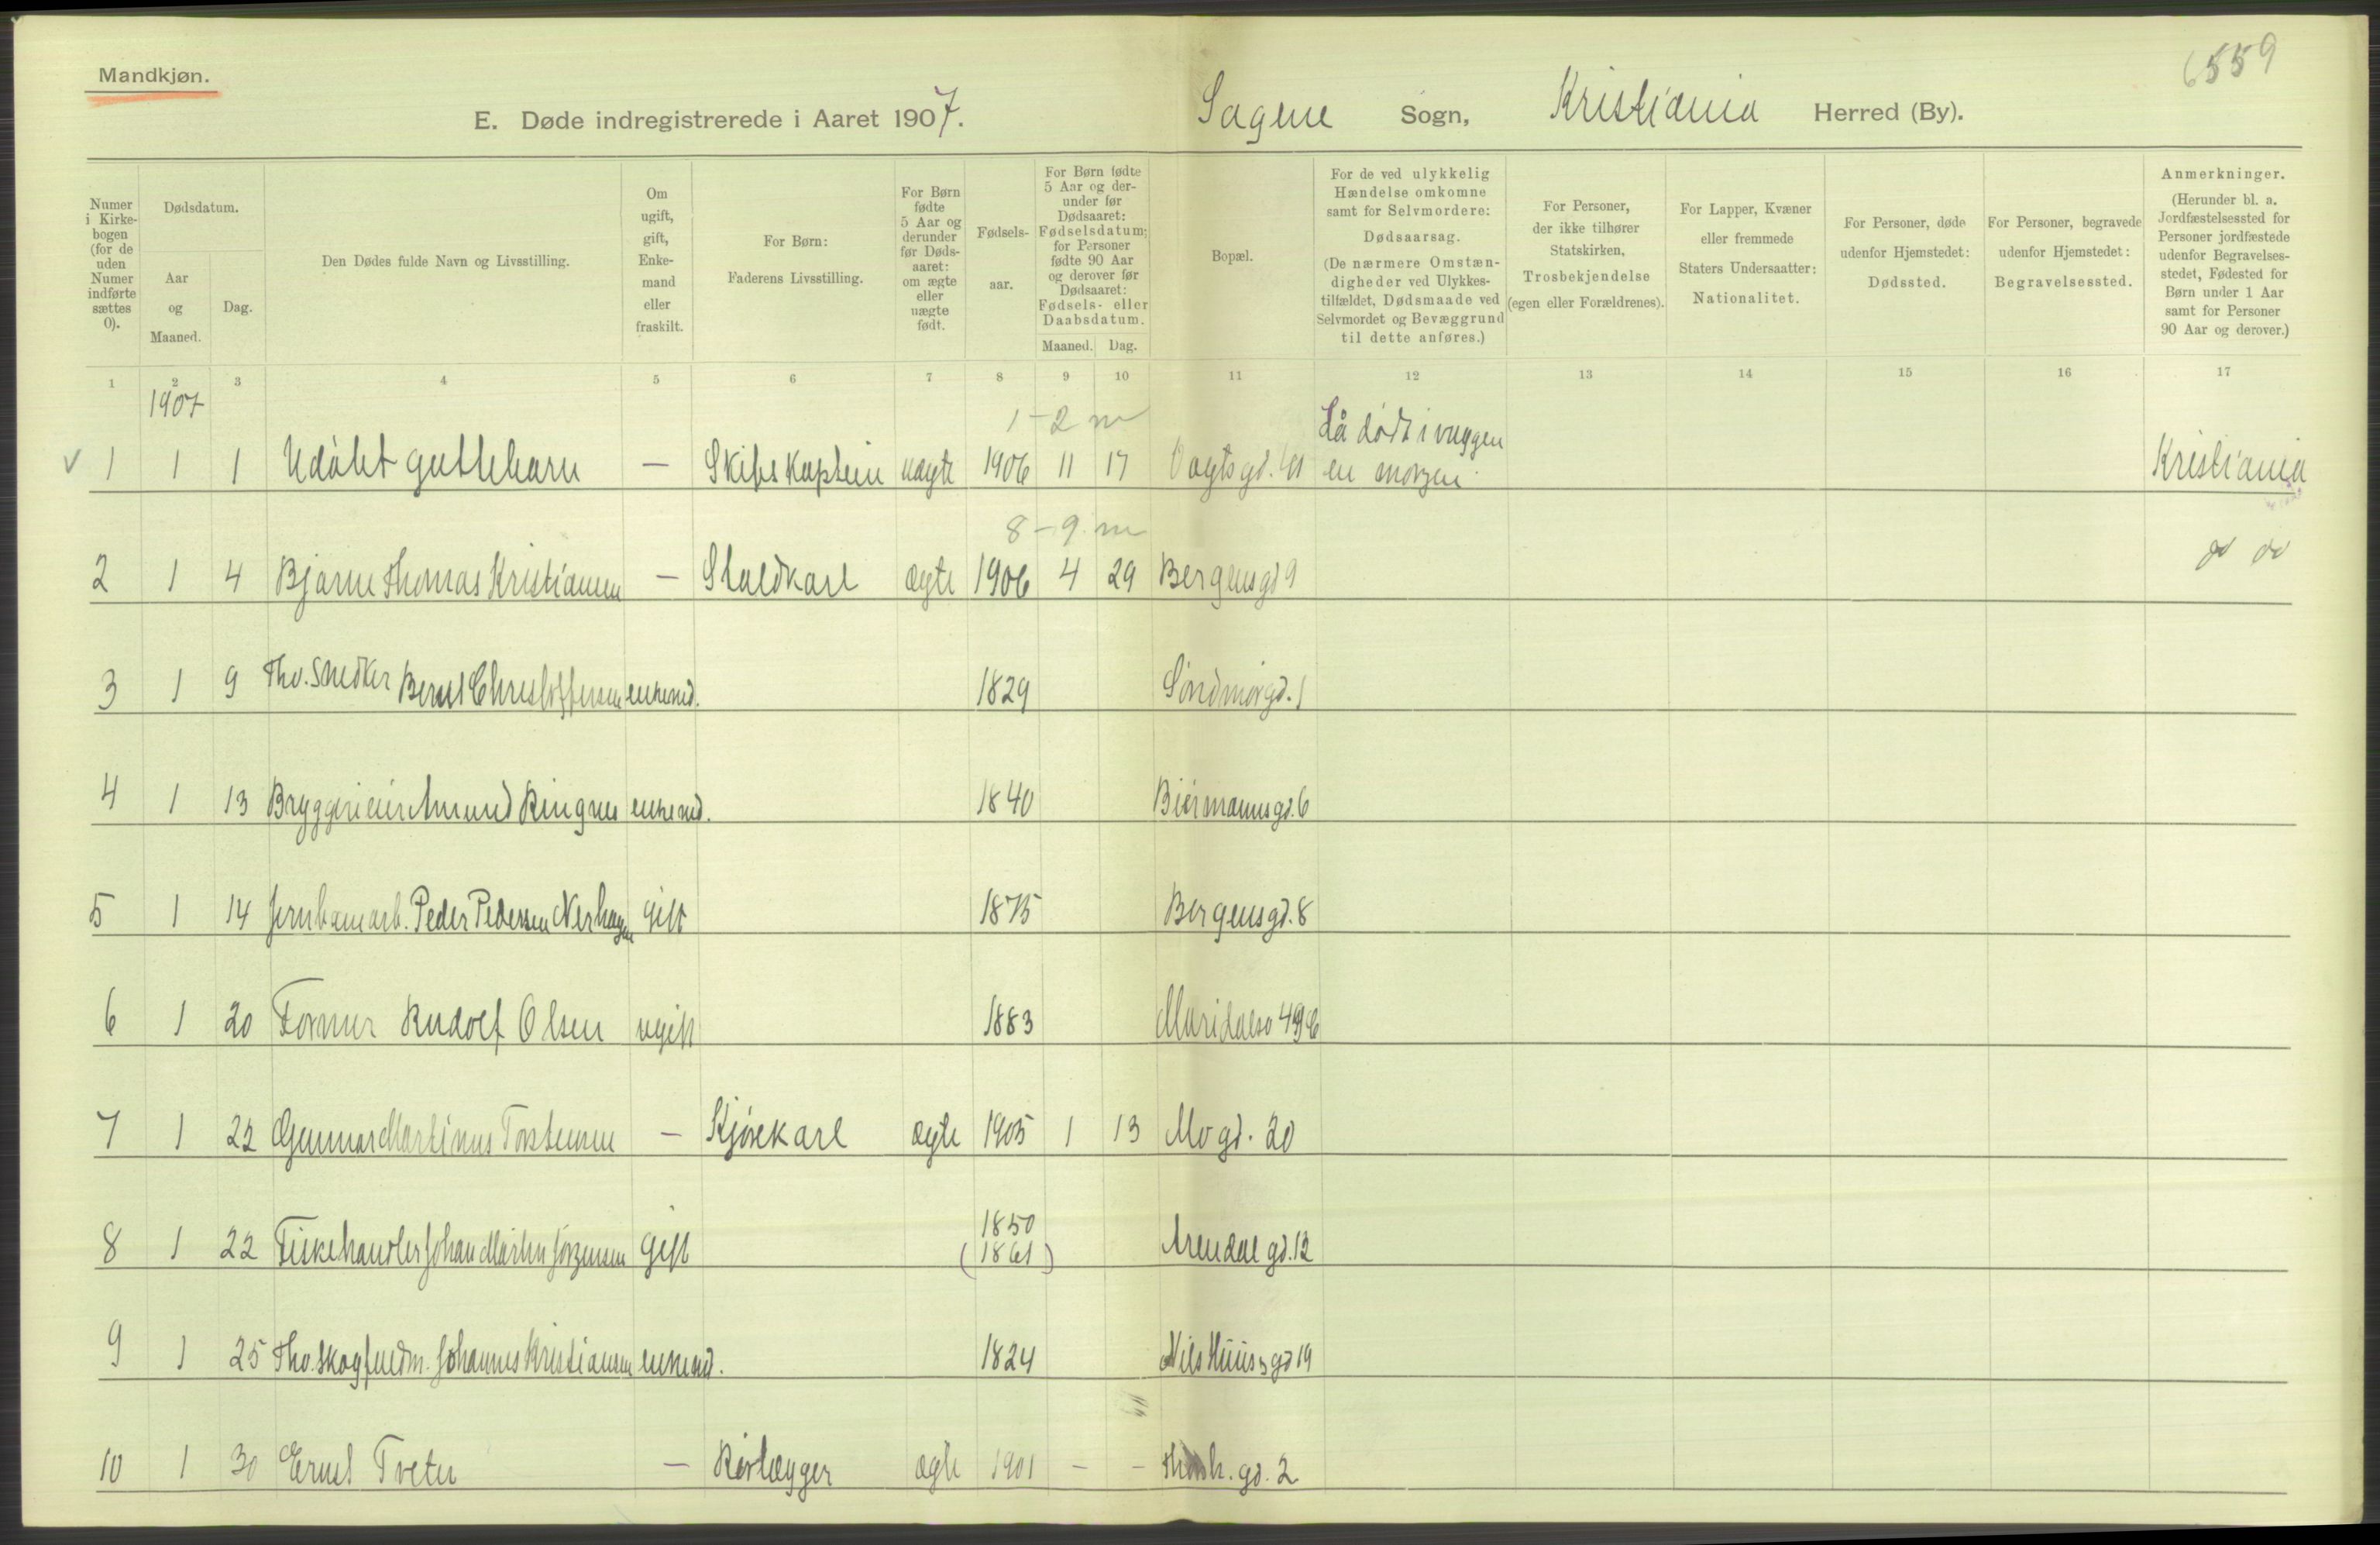 Mandkjøn.
6559
E. Døde indregistrerede i Aaret 1907. Sagene Sogn, Kristiania Herred (By).
Numer i Kirke-bogen (for de uden Numer indførte sættes 0).
Dødsdatum.
Aar og Maaned.
Dag.
Den Dødes fulde Navn og Livsstilling.
Om ugift, gift, Enke-mand eller fraskilt.
For Børn: Faderens Livsstilling.
For Børn fødte 5 Aar og derunder før Døds-aaret: om ægte eller uægte født.
Fødsels-aar.
For Børn fødte 5 Aar og der-under før Dødsaaret: Fødselsdatum; for Personer fødte 90 Aar og derover før Dødsaaret: Fødsels- eller Daabsdatum.
Maaned. Dag.
Bopæl.
For de ved ulykkelig Hændelse omkomne samt for Selvmordere: Dødsaarsag. (De nærmere Omstæn-digheder ved Ulykkes-tilfældet, Dødsmaade ved Selvmordet og Bevæggrund til dette anføres.)
For Personer, der ikke tilhører Statskirken, Trosbekjendelse (egen eller Forældrenes).
For Lapper, Kvæner eller fremmede Staters Undersaatter: Nationalitet.
For Personer, døde udenfor Hjemstedet: Dødssted.
For Personer, begravede udenfor Hjemstedet: Begravelsessted.
Anmerkninger. (Herunder bl. a. Jordfæstelsessted for Personer jordfæstede udenfor Begravelses-stedet, Fødested for Børn under 1 Aar samt for Personer 90 Aar og derover.)
1 2 3 4 5 6 7 8 9 10 11 12 13 14 15 16 17
1907
1-2 m
Lå dødt i vuggen
1 1 1 Udøbt guttebarn — Skibskaptein uægte 1906 11 17 Vogtsgd. en morgen Kristiania
8-9 m
2 1 4 Bjarne Thomas Kristiansen — Staldkarl ægte 1906 4 29 Bergensgd 9 do do
3 1 9 Fhv. Snedker Bernt Christoffersen enkemd. 1829 Søndmørgd. 1
4 1 13 Bryggerieier Amund Ringnes enkemd. 1840 Biermannsgd. 6
5 1 14 Jernbanearb. Peder Pedersen Nerhagen gift 1875 Bergensgd. 8
6 1 20 Former Rudolf Olsen ugift 1883 Maridalsv
7 1 22 Gunnar Martinus Torstensen — Kjørekarl ægte 1905 1 13 Mogd. 20
1850
8 1 22 Fiskehandler Johan Martin Jørgensen gift (1861) Arendalgd. 12
9 1 25 Fhv. skogfuldm. Johannes Kristiansen enkemd. 1824 Nils Huusgd 19
10 1 30 Ernst Tveter — Rørlægger ægte 1901 — — gd. 2